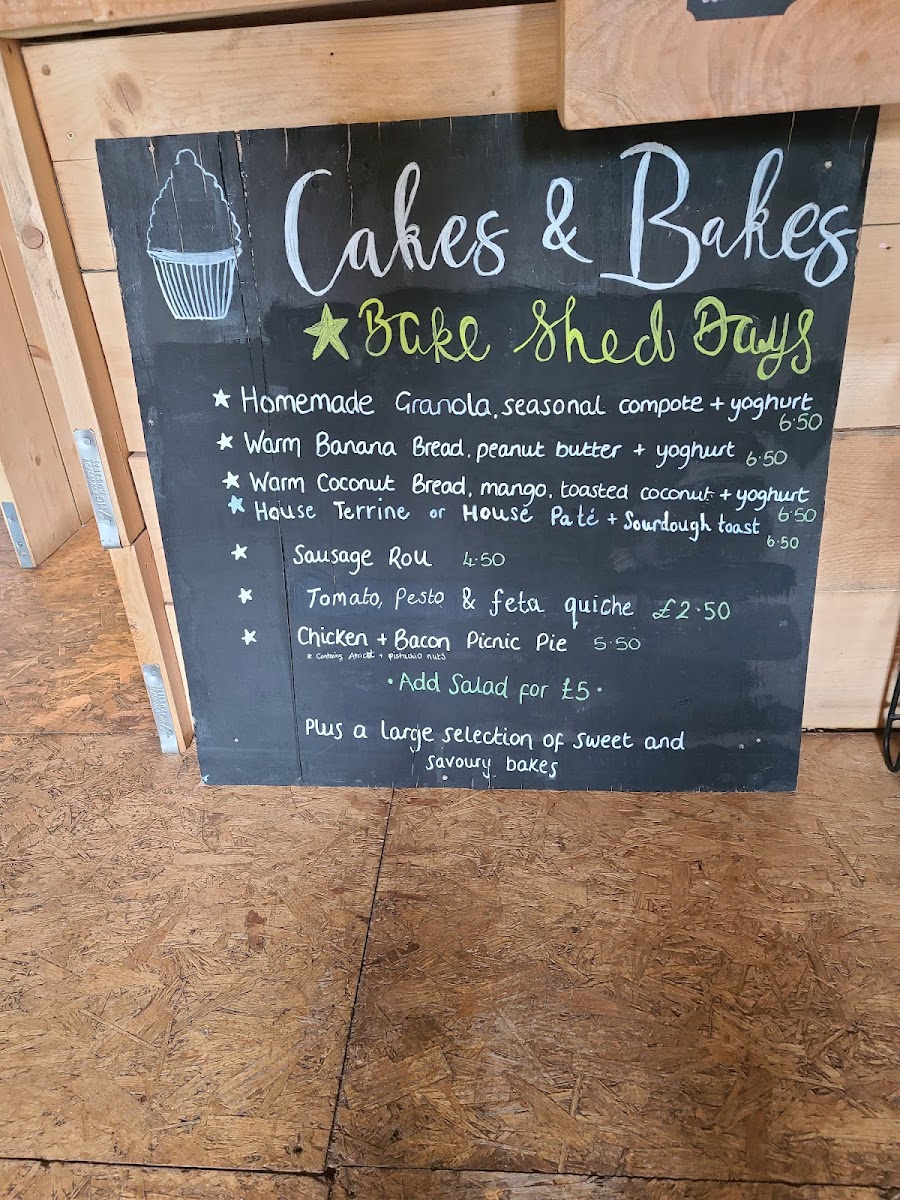 Cakes & Bakes
Bake Shed Days
Homemade Granola, seasonal compote + yoghurt
6.50
Warm Banana Bread, peanut butter + yoghurt 6.50
Warm Coconut Bread, mango, toasted coconut + yoghurt
6.50
House Terrine or House Paté + Sourdough toast
6.50
Sausage Roll 4.50
Tomato, Pesto & feta quiche £2.50
Chicken + Bacon Picnic Pie 5.50
* Contains Apricot + pistachio nuts
• Add Salad for £5 •
Plus a large selection of sweet and
savoury bakes